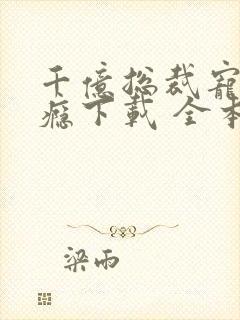 千億總裁寵
癮下載 全本
梁雨